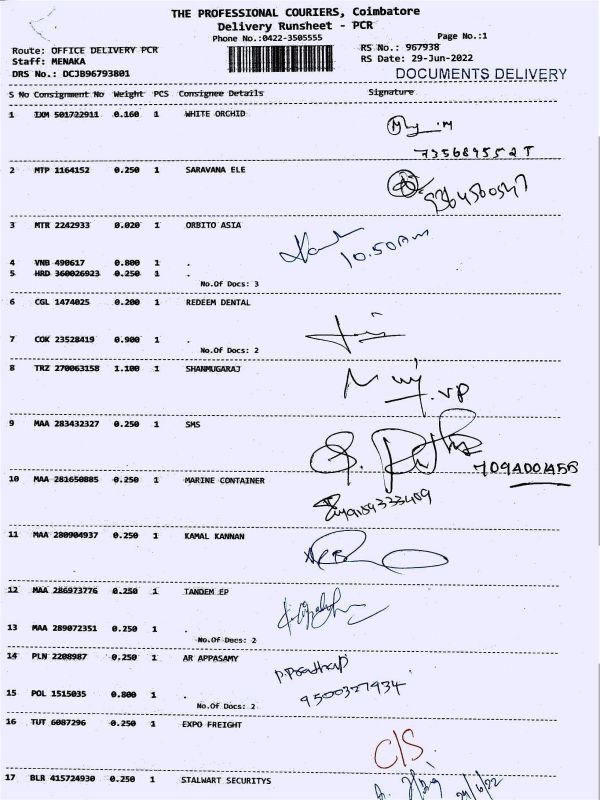 THE PROFESSIONAL COURIERS, Coimbatore
Delivery Runsheet - PCR
Phone No.:0422-3505555
Page No.:1
Route: OFFICE DELIVERY PCR
RS No.: 967938
Staff: MENAKA
RS Date: 29-Jun-2022
DRS No.: DCJB96793801
DOCUMENTS DELIVERY
S No Consignment No Weight PCS Consignee Details Signature
1 IXM 501722911 0.160 1 WHITE ORCHID
2 MTP 1164152 0.250 1 SARAVANA ELE
3 MTR 2242933 0.020 1 ORBITO ASIA
10.50 Am
4 VNB 490617 0.800 1 .
5 HRD 360026923 0.250 1 .
No.Of Docs: 3
6 CGL 1474025 0.200 1 REDEEM DENTAL
7 COK 23528419 0.900 1 .
No.Of Docs: 2
8 TRZ 270063158 1.100 1 SHANMUGARAJ
9 MAA 283432327 0.250 1 SMS
10 MAA 281650885 0.250 1 MARINE CONTAINER
11 MAA 280904937 0.250 1 KAMAL KANNAN
12 MAA 286973776 0.250 1 TANDEM EP
13 MAA 289072351 0.250 1 .
No.Of Docs: 2
14 PLN 2208987 0.250 1 AR APPASAMY
15 POL 1515035 0.800 1 .
9500327934
No.Of Docs: 2
16 TUT 6087296 0.250 1 EXPO FREIGHT
C/S.
17 BLR 415724930 0.250 1 STALWART SECURITYS